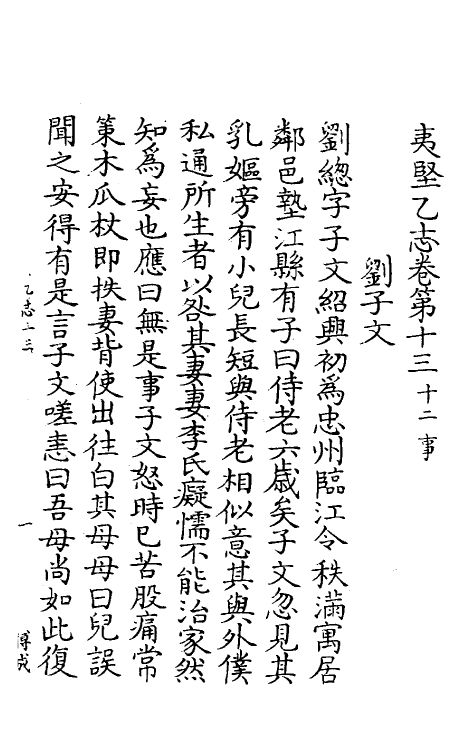 夷堅乙志卷第十三 十二事
劉子文
劉總字子文紹興初為忠州臨江令秩滿寓居
鄰邑墊江縣有子曰侍老六歲矣子文忽見其
乳嫗旁有小兒長短與侍老相似意其與外僕
私通所生者以咎其妻妻李氏癡懦不能治家然
知為妄也應曰無是事子文怒時已苦股痛常
策木瓜杖即抶妻背使出往白其母母曰兒誤
聞之安得有是言子文嗟恚曰吾母尚如此復
乙志十三
一
博成